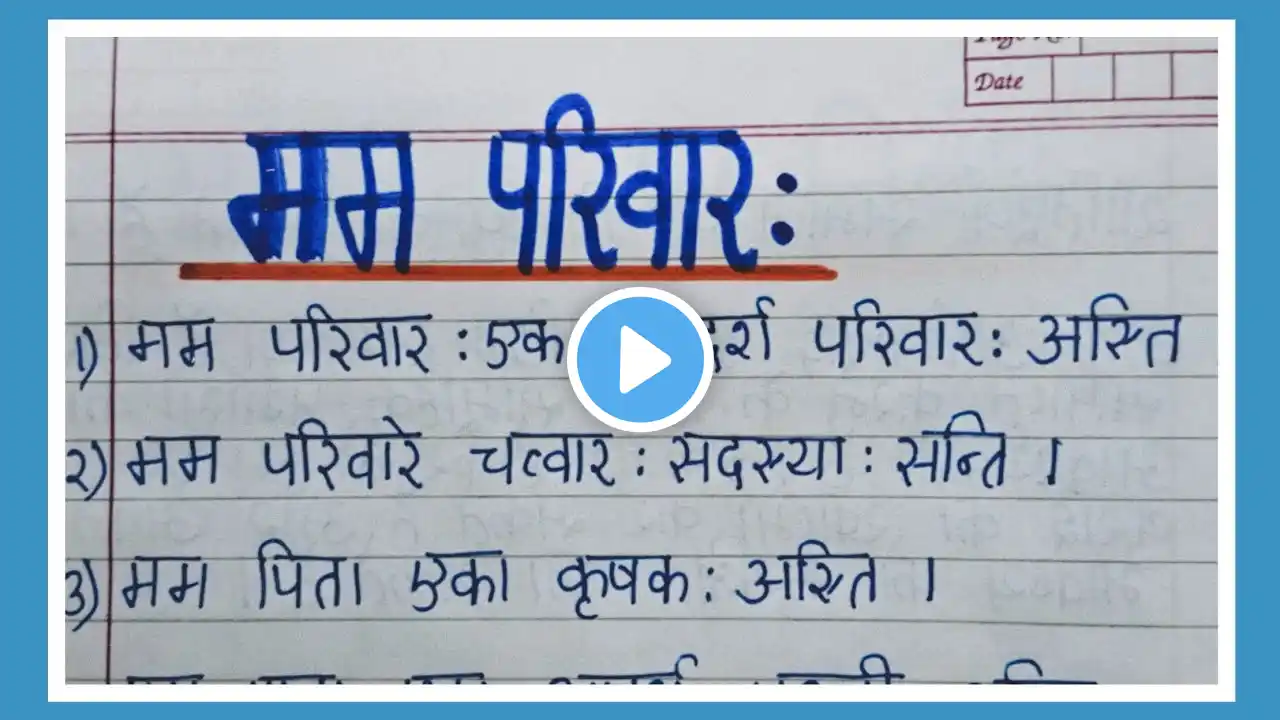 Date
मम परिवार:
1) मम परिवार : एक दर्श परिवार: अस्ति
२) मम परिवारे चत्वार : सदस्या : सन्ति ।
३) मम पिता एका कृषक: अस्ति ।